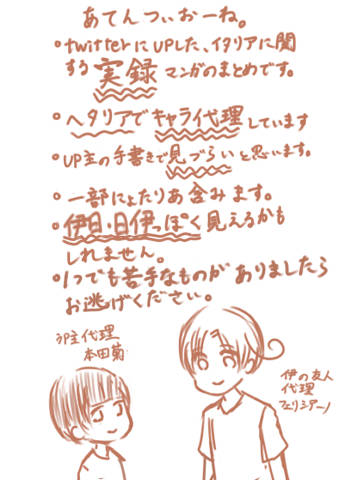 あてんつぃおーね。
・twitterにUPした、イタリアに関
する実録マンガのまとめです。
・ヘタリアでキャラ代理しています
・UP主の手書きで見づらいと思います。
・一部にょたりあ含みます。
・伊日・日伊っぽく見えるかも
しれません。
・1つでも苦手なものがありましたら
お逃げください。
UP主代理
本田菊
伊の友人
代理
フェリシアーノ